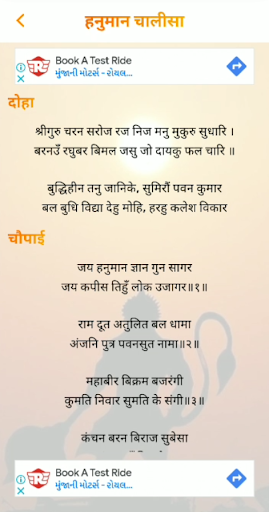 हनुमान चालीसा
Book A Test Ride
મુંજાની મોટર્સ - રોયલ...
दोहा
श्रीगुरु चरन सरोज रज निज मनु मुकुरु सुधारि ।
बरनउँ रघुबर बिमल जसु जो दायकु फल चारि ॥
बुद्धिहीन तनु जानिके, सुमिरौं पवन कुमार
बल बुधि विद्या देहु मोहि, हरहु कलेश विकार
चौपाई
जय हनुमान ज्ञान गुन सागर
जय कपीस तिहुँ लोक उजागर॥१॥
राम दूत अतुलित बल धामा
अंजनि पुत्र पवनसुत नामा॥२॥
महाबीर बिक्रम बजरंगी
कुमति निवार सुमति के संगी॥३॥
कंचन बरन बिराज सुबेसा
Book A Test Ride
મુંજાની મોટર્સ - રોયલ...